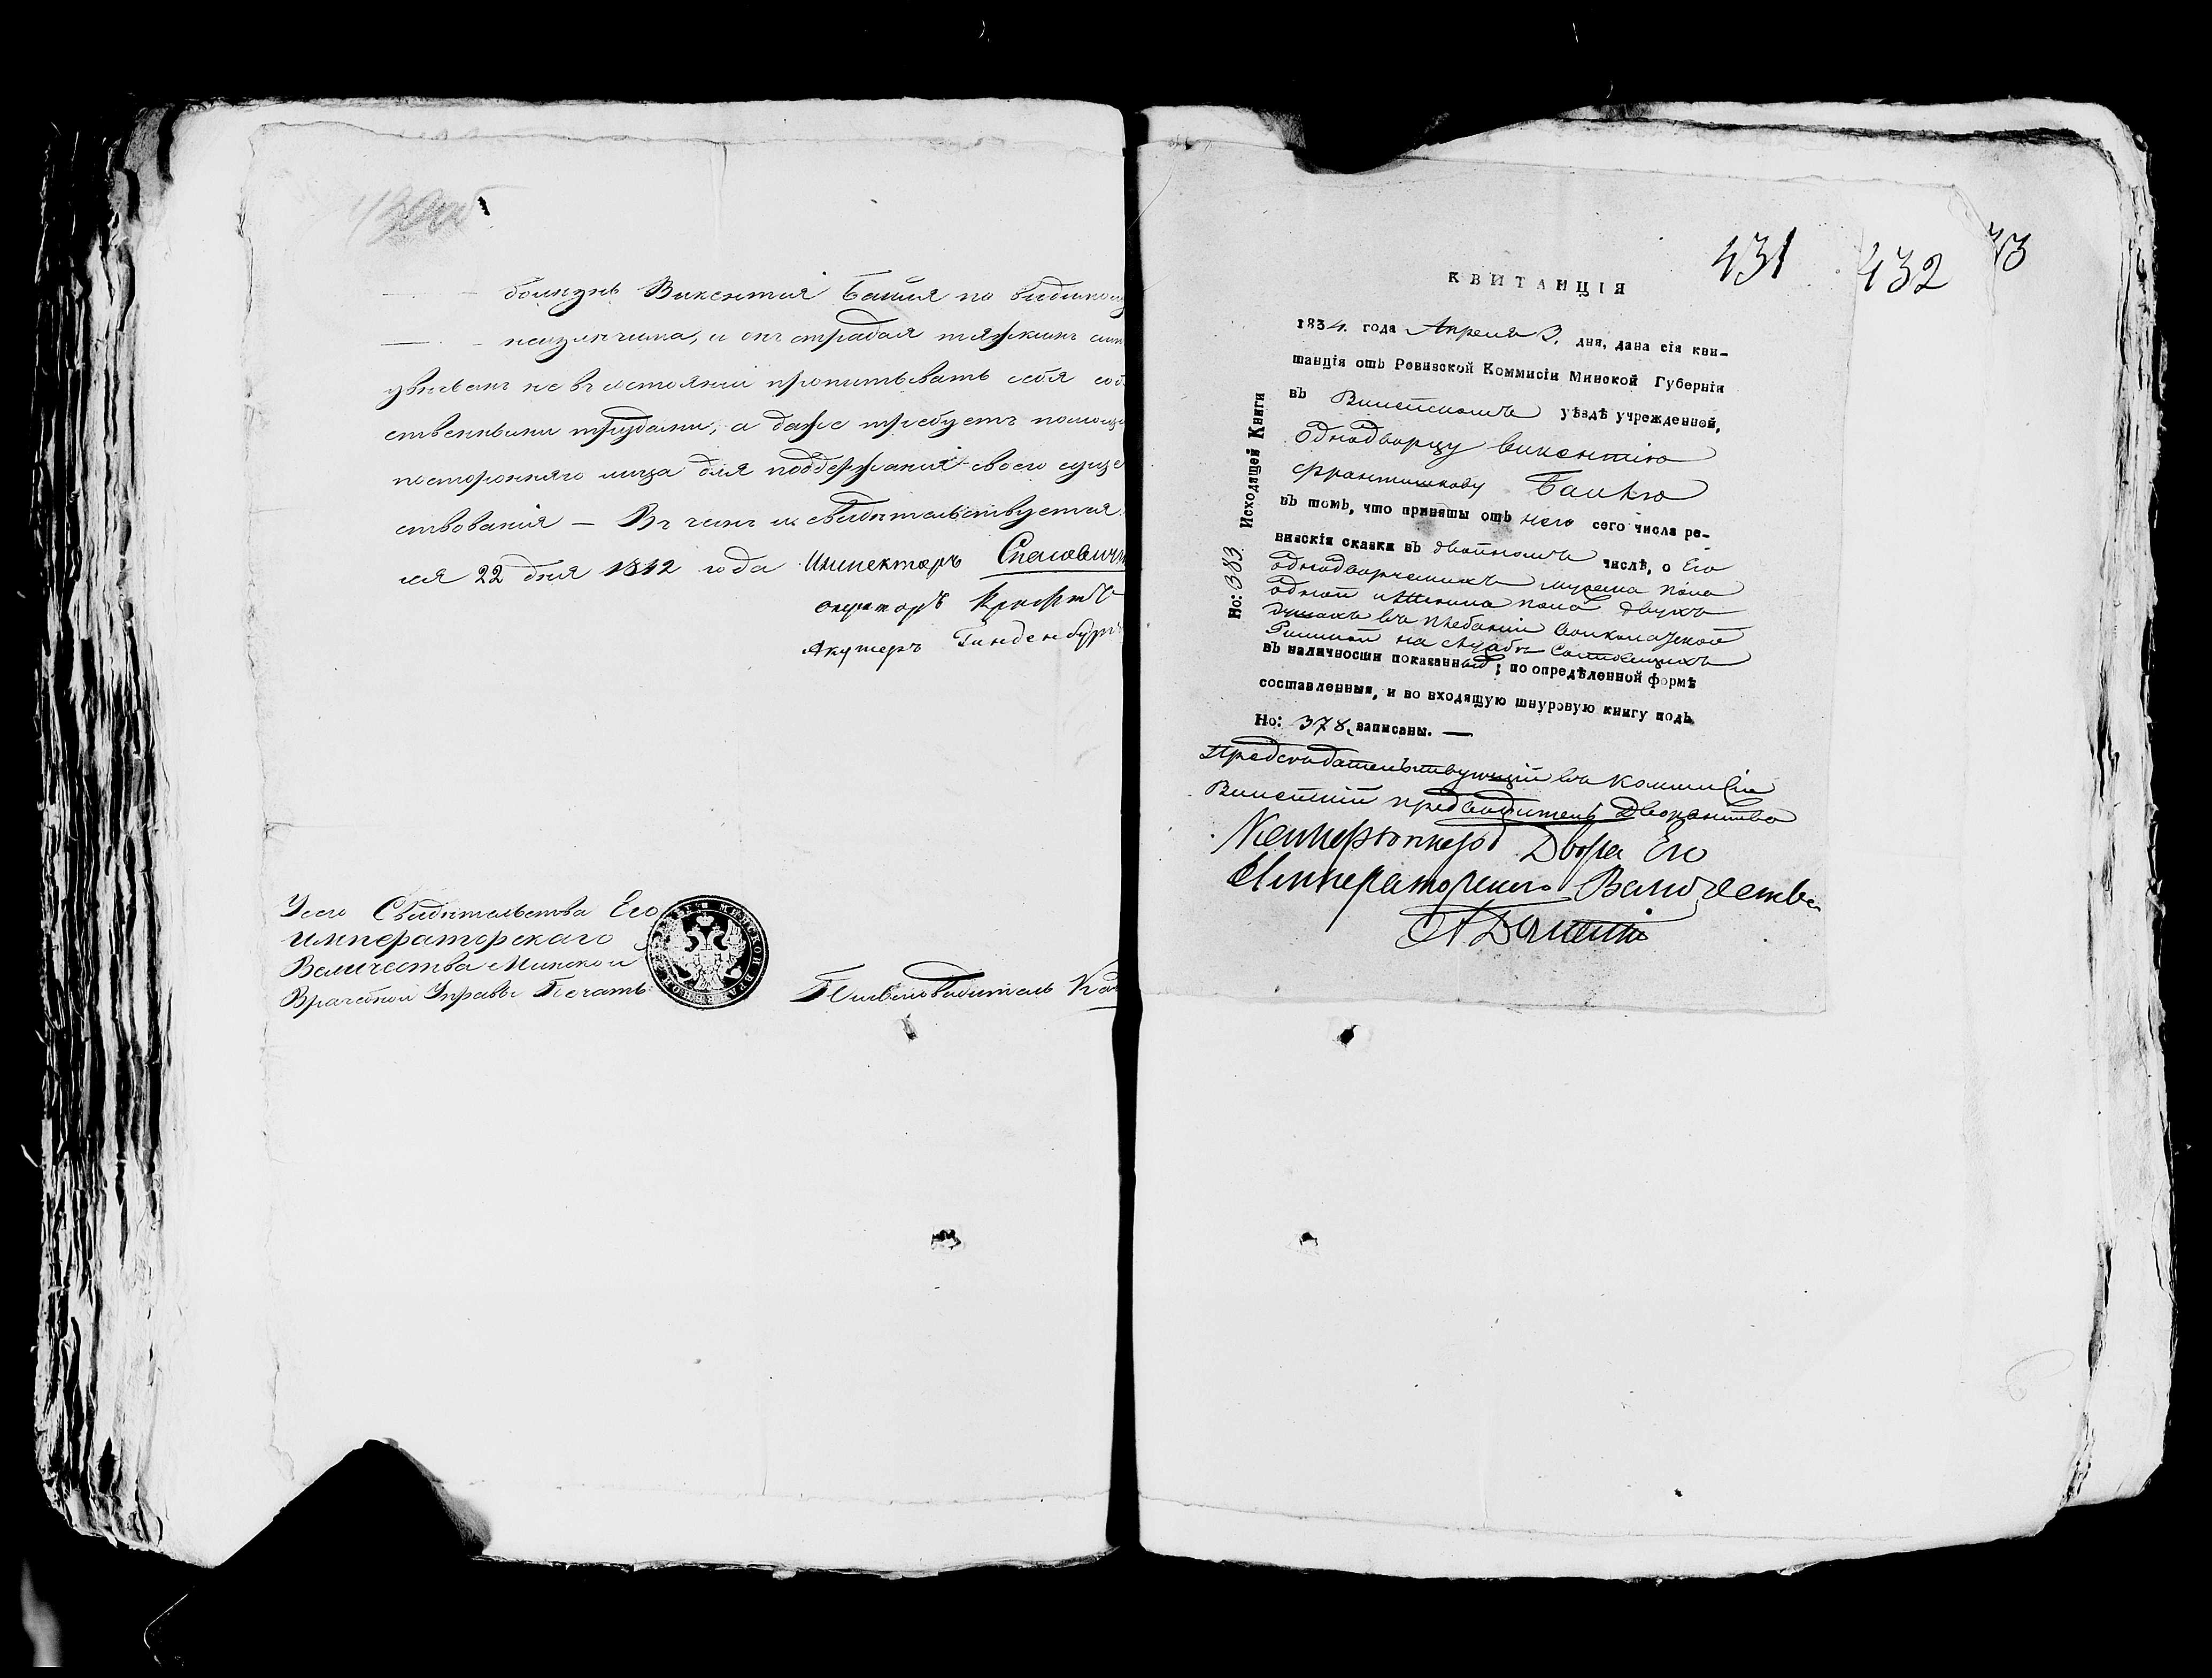 430об
болѣзнь Викентія Баля по видимому
неизлѣчима, и онъ страдая тяжкимъ
не въ состояніи пропитывать себя соб
ственными трудами, а даже требуетъ помощи
посторонняго лица для поддержанія своего суще
ствованія — Въ чемъ и свидѣтельствуется.
22 дня 1842 года Инспекторъ
Операторъ
Акушеръ Гинденбургъ
У сего Свидѣтельства Его
Императорскаго
Величества Минской
Врачебной Управы Печать
431 432 43
КВИТАНЦІЯ
1834. года Апреля 3. дня, дана сія кви-
танція отъ Ревизской Коммисіи Минской Губерніи
въ Вилейскомъ уѣздѣ учрежденной,
однодворцу Викентію
Франтишкову Балю
въ томъ, что приняты отъ него сего числа ре-
визскія сказки въ двойномъ числѣ, о Его
однодворческихъ мужеска пола
одной и женска пола двухъ
душахъ въ Плебаніи
на службѣ
въ наличности показанныхъ; по опредѣленной формѣ
составленныя, и во входящую шнуровую книгу подъ
Но: 378. записаны. —
Но: 383 Исходящей Книги
Предсѣдательствующій въ Коммисіи
Вилейскій предводитель Дворянства
Камеръюнкеръ Двора Его
Императорскаго Величества